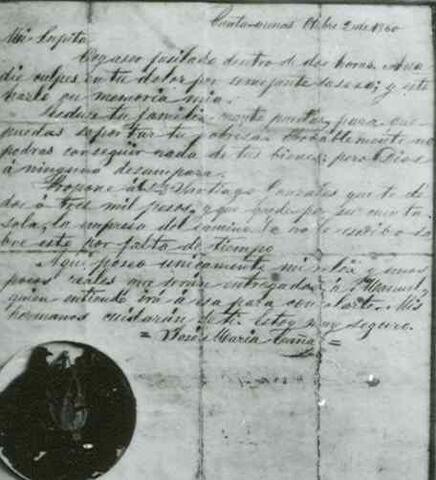 Punta-arenas Octbre 2 de 1860
Mi Lupita
Voy a ser fusilado dentro de dos horas. A na
die culpes en tu dolor por semejante suceso; y esto
hazlo en memoria mia.
Reduce tu familia para que
puedas soportar tu pobreza. Probablemente no
podras conseguir nada de tus bienes; pero Dios
á ninguno desampara.
Propone á Dn Santiago Gonzales que te dé
dos ó tres mil pesos, y que quede por su cuenta
sola, la empresa del camino. A no le escribo so
bre esto por falta de tiempo.
Aqui poseo unicamente mi reloj i unos
pocos reales que serán entregados á Manuel,
quien entiendo irá á esa para consolarte. Mis
hermanos cuidarán de ti. Estoy muy seguro.
= José Maria Cañas =